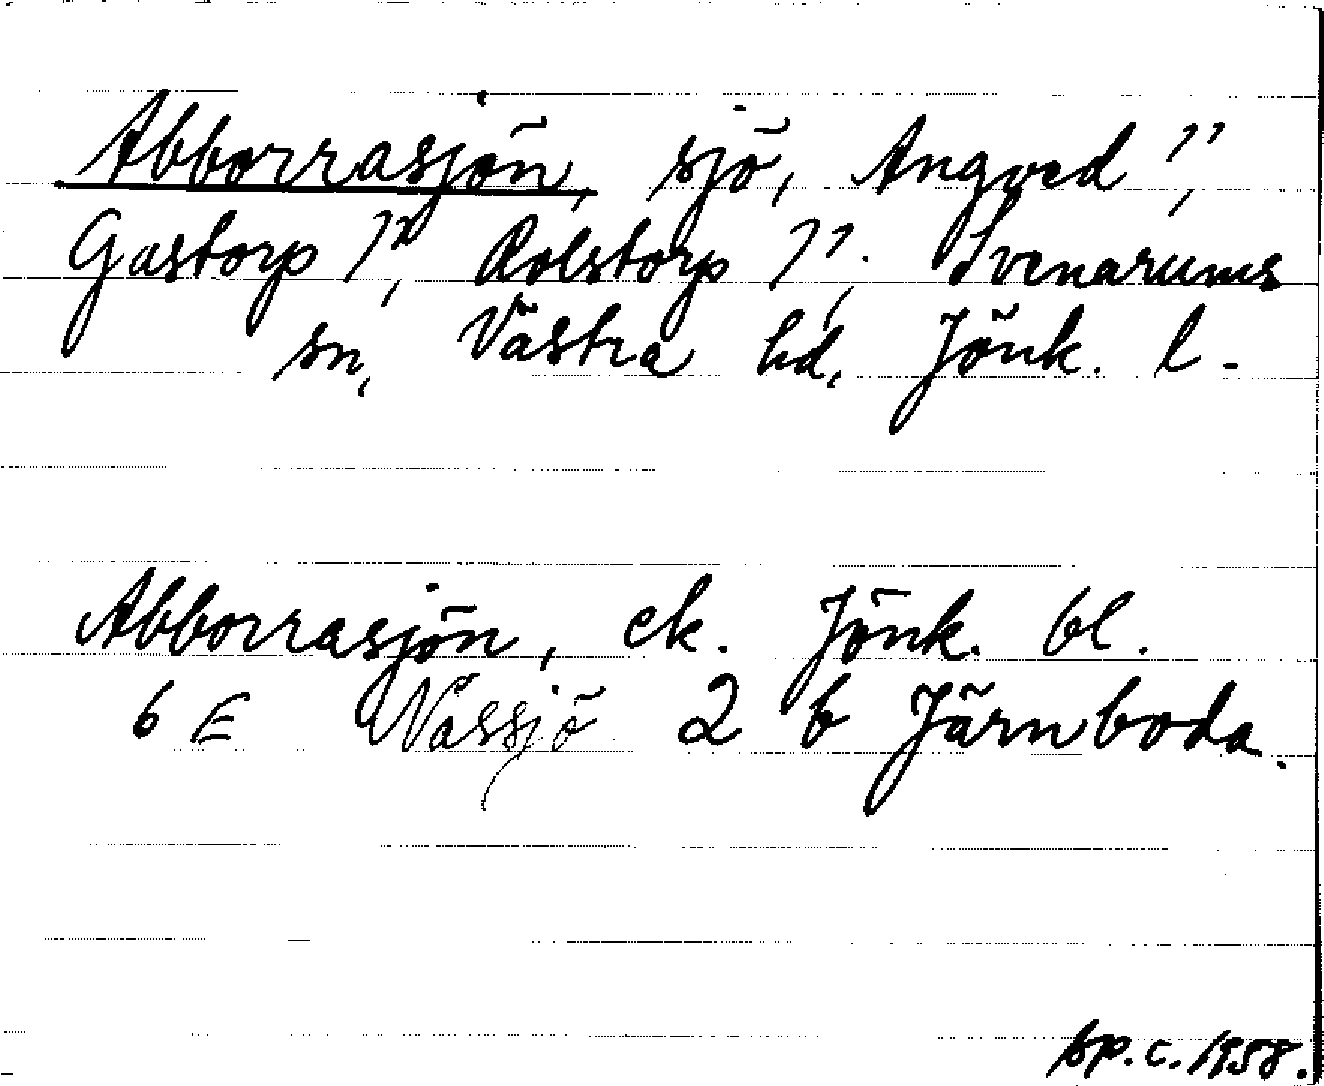 Abborrasjön, sjö, Angoed 11,
Gastorp 12, Rolstorp 11, Svenarums
sn, Västra hd, Jönk. l.
Abborrasjön, ek. Jönk. bl.
6 E Nässjö 2 b Järnboda.
sp.c. 1958.